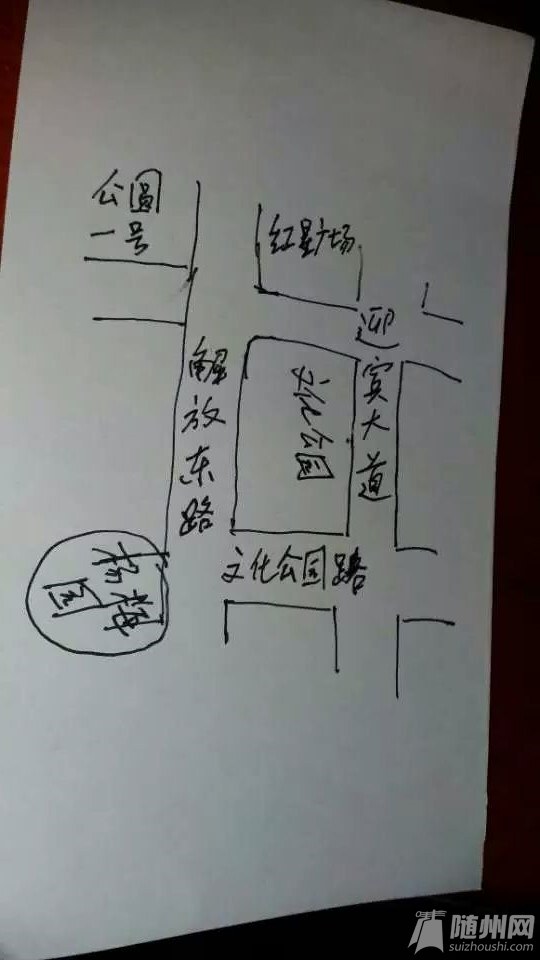 公园
一号
红星广场
迎宾大道
解放东路
文化公园
文化公园路
杨梅
园
随州网
suizhoushi.com